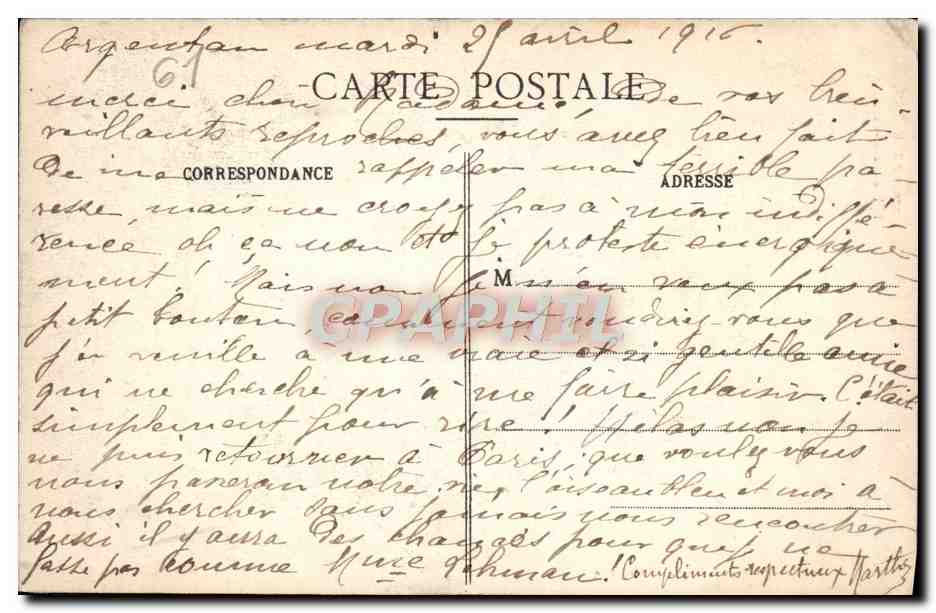 Argentan mardi 25 avril 1916.
61
CARTE POSTALE
merci, chère Madame! De vos bien
veillants reproches, vous avez bien fait
de me rappeler ma terrible pa-
CORRESPONDANCE
ADRESSE
resse, mais ne croyez pas à mon indiffé
rence oh ça non je proteste énergique
ment! Mais non je n'en veux pas à
M
petit Toutou, comment voudriez-vous que
CPAPHIL
j'en veuille à une vraie et si gentille amie
qui ne cherche qu'à me faire plaisir. C'était
simplement pour rire! Hélas non je
ne puis retourner à Paris, que voulez vous
nous passerons notre vie, l'oiseau bleu et moi à
nous chercher sans jamais nous rencontrer
Aussi il y aura des chances pour que je ne
fasse pas comme Mme Lehman! Compliments respectueux Marthe